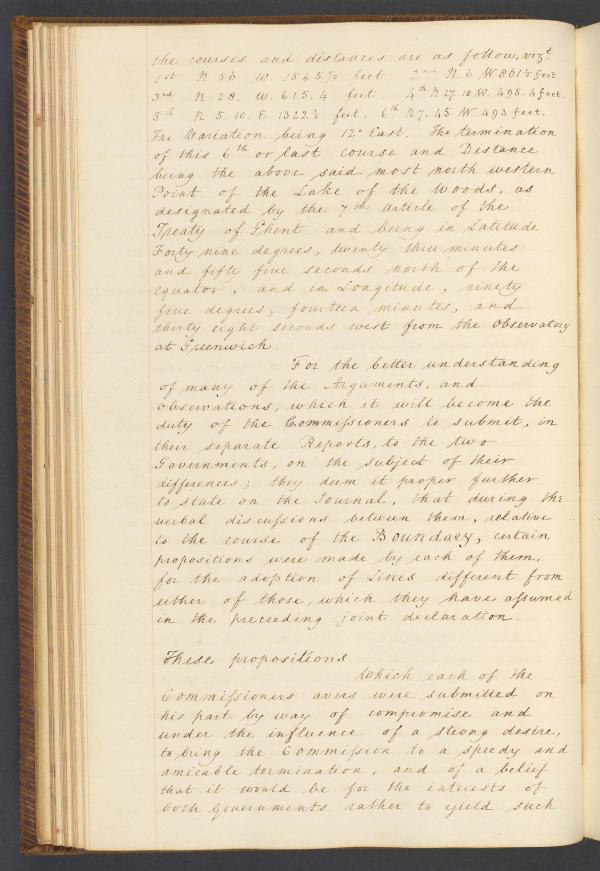 the courses and distances are as follow, vizt.
1st N. 56 W. 1565½ feet 2nd N. 6. W 861½ feet.
3rd N. 28. W. 615.4 feet. 4th N 27.10 W. 495.4 feet.
5th N 5.10. E. 1322½ feet. 6th N 7.45 W. 493 feet.
The Variation being 12° East. The termination
of this 6th or last course and Distance
being the above said most north western
Point of the Lake of the Woods, as
designated by the 7th article of the
Treaty of Ghent and being in Latitude
Forty nine degrees, twenty three minutes
and fifty five seconds north of the
equator, and in Longitude, ninety
five degrees, fourteen minutes, and
thirty eight seconds west from the Observatory
at Greenwich.
For the better understanding
of many of the Arguments, and
observations, which it will become the
duty of the Commissioners to submit, in
their separate Reports, to the two
Governments, on the subject of their
differences; they deem it proper further
to state on the Journal, that during the
verbal discussions between them, relative
to the course of the Boundary, certain
propositions were made by each of them,
for the adoption of Lines different from
either of those, which they have assumed
in the preceeding joint declaration.
These propositions
which each of the
Commissioners avers were submitted on
his part by way of compromise and
under the influence of a strong desire,
to bring the Commission to a speedy and
amicable termination, and of a belief
that it would be for the interests of
both Governments rather to yield such